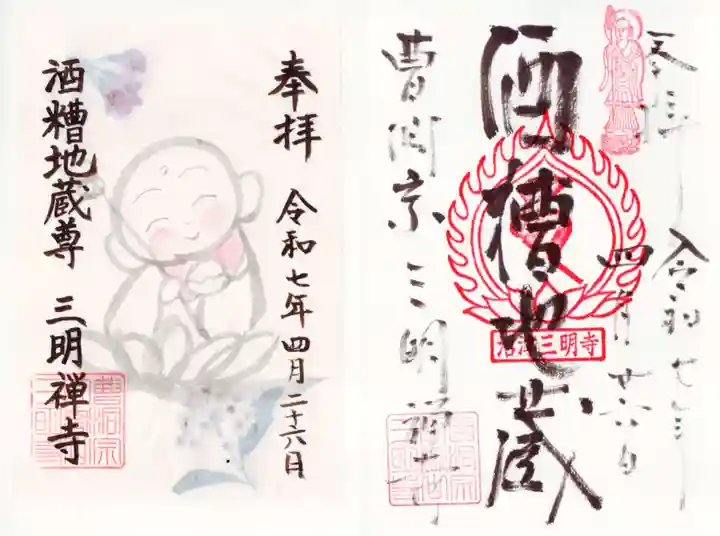 奉拝
令和七年四月二十六日
酒糟地蔵尊
三明禅寺
奉拝
令和七年
四月廿六日
酒糟地蔵
沼津三明寺
曹洞宗 三明禅寺